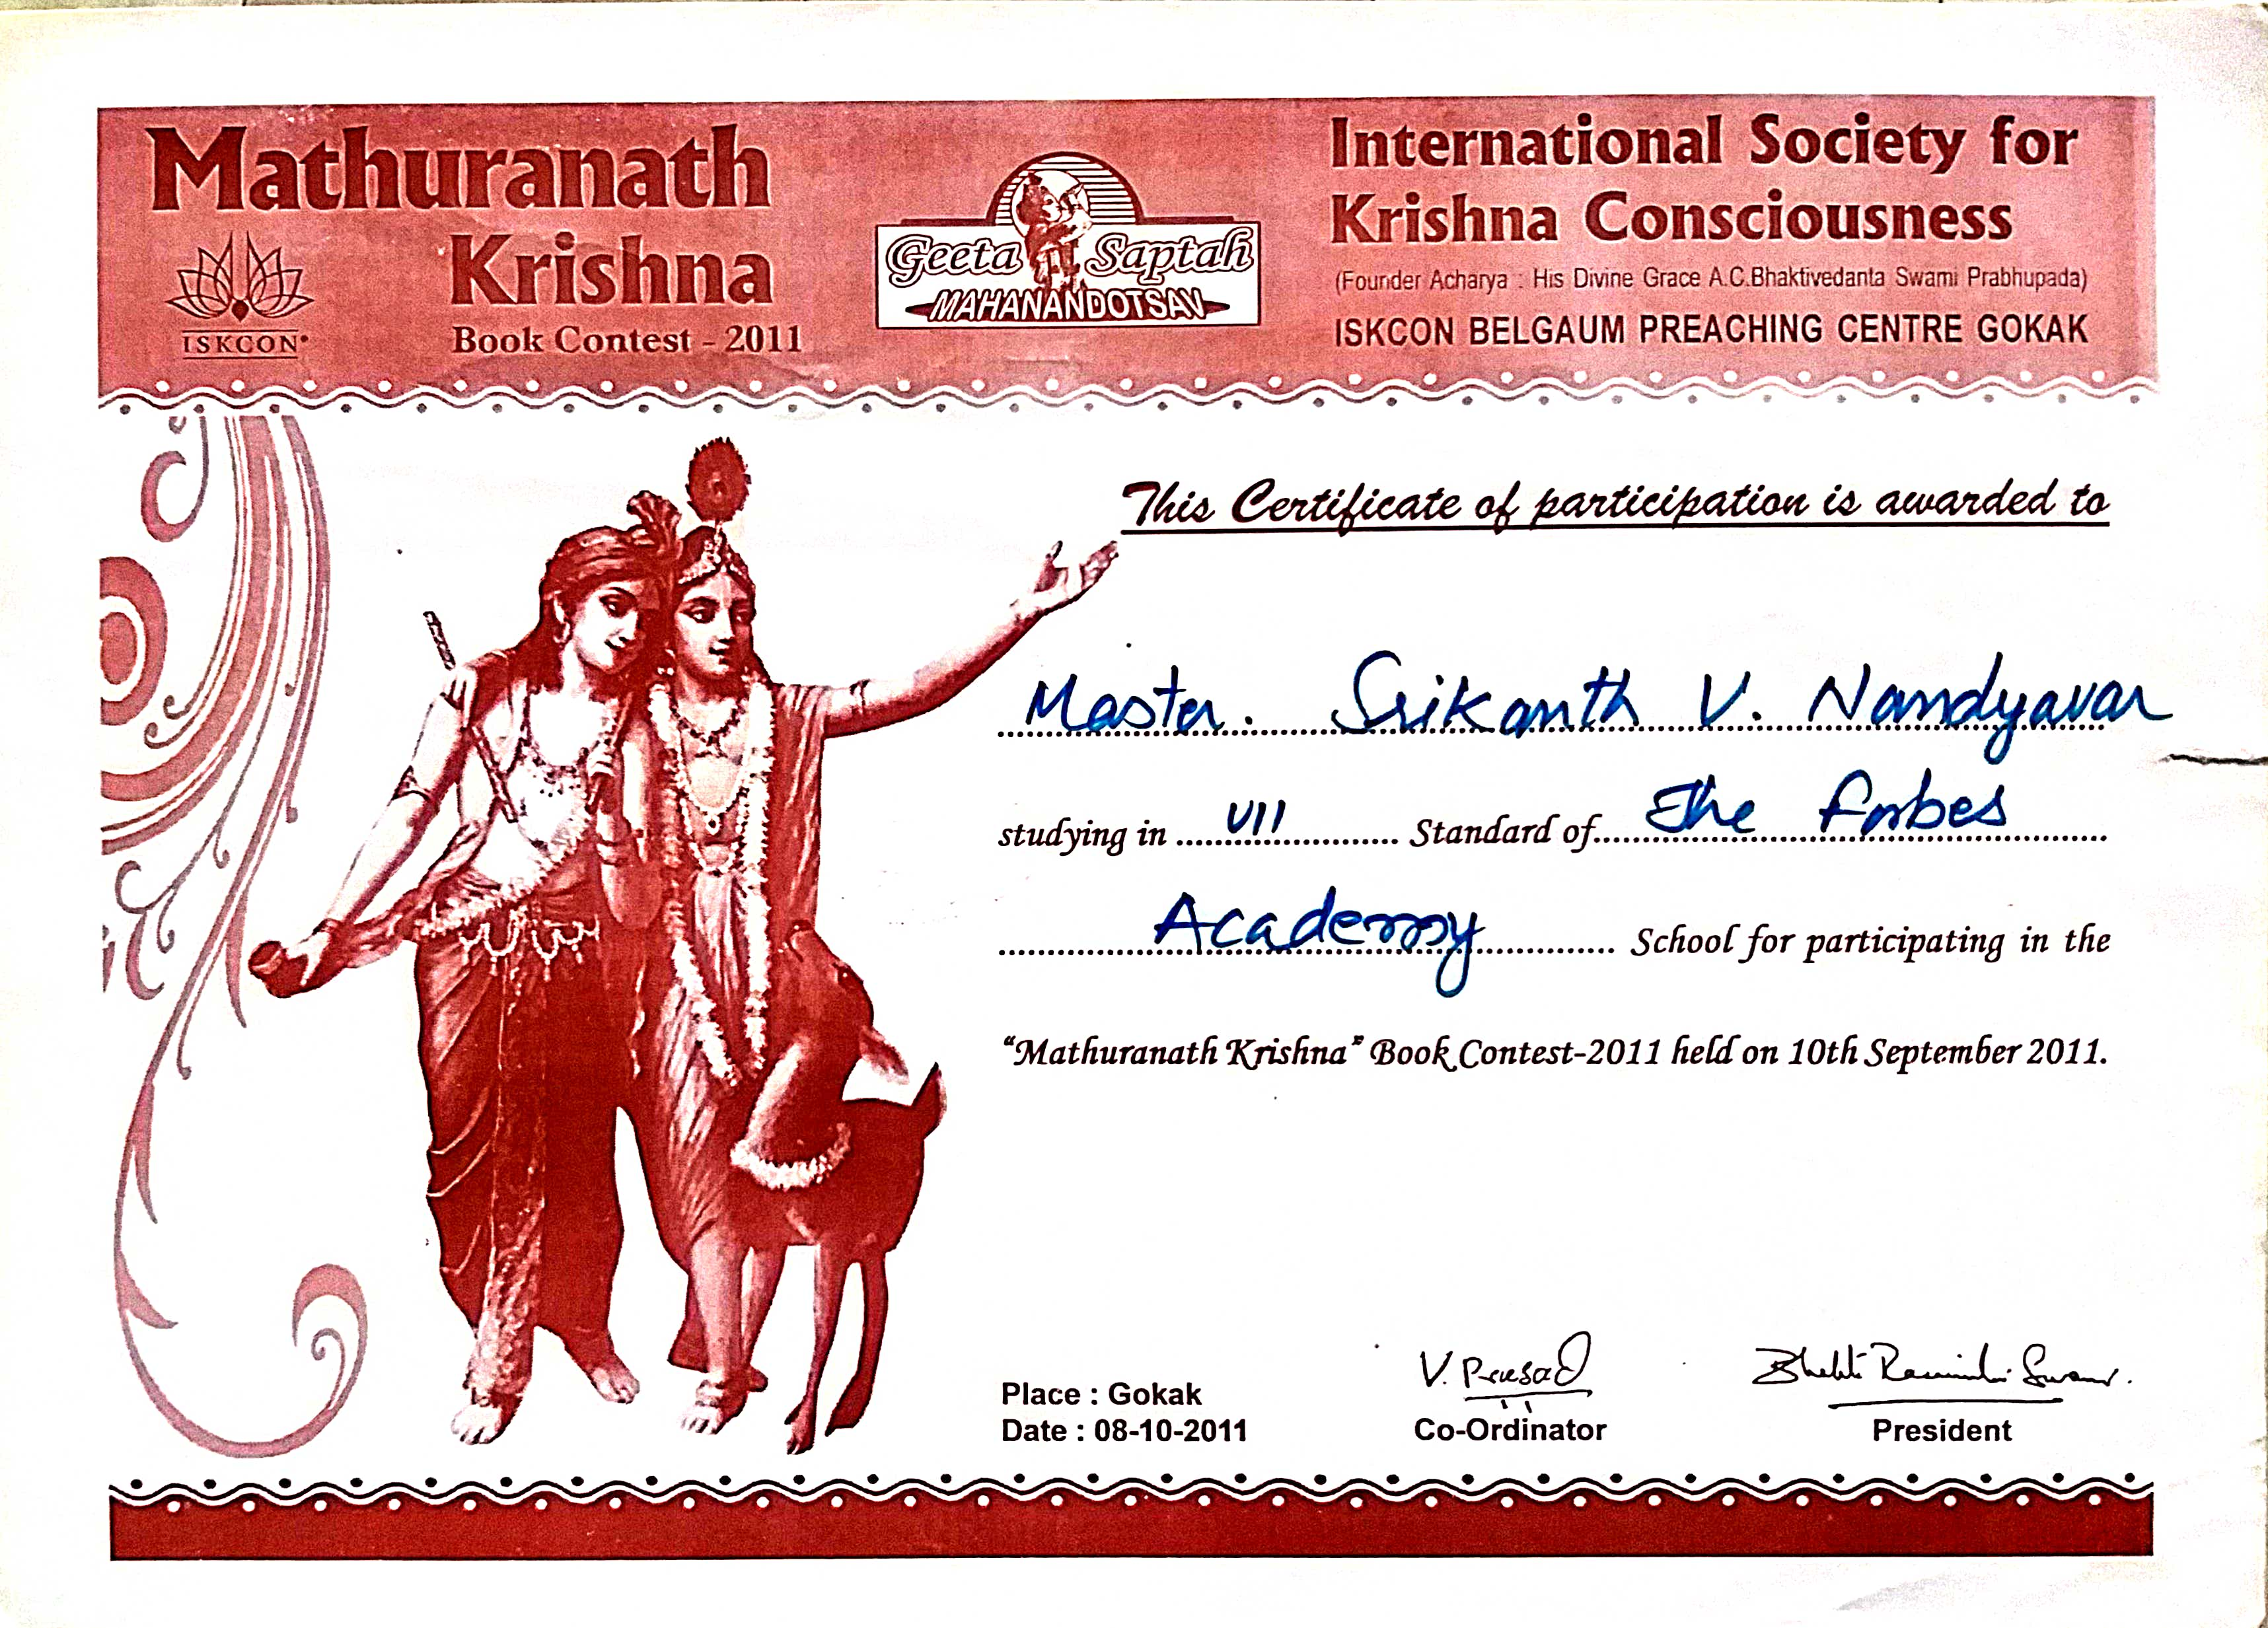 Mathuranath
Krishna
Book Contest - 2011
ISKCON
Geeta Saptah
MAHANANDOTSAV
International Society for
Krishna Consciousness
(Founder Acharya : His Divine Grace A.C.Bhaktivedanta Swami Prabhupada)
ISKCON BELGAUM PREACHING CENTRE GOKAK
This Certificate of participation is awarded to
Master. Srikanth V. Nandyavar
studying in VII Standard of The Forbes
Academy School for participating in the
"Mathuranath Krishna" Book Contest-2011 held on 10th September 2011.
V. Prasad
Place : Gokak
Date : 08-10-2011
Co-Ordinator
President